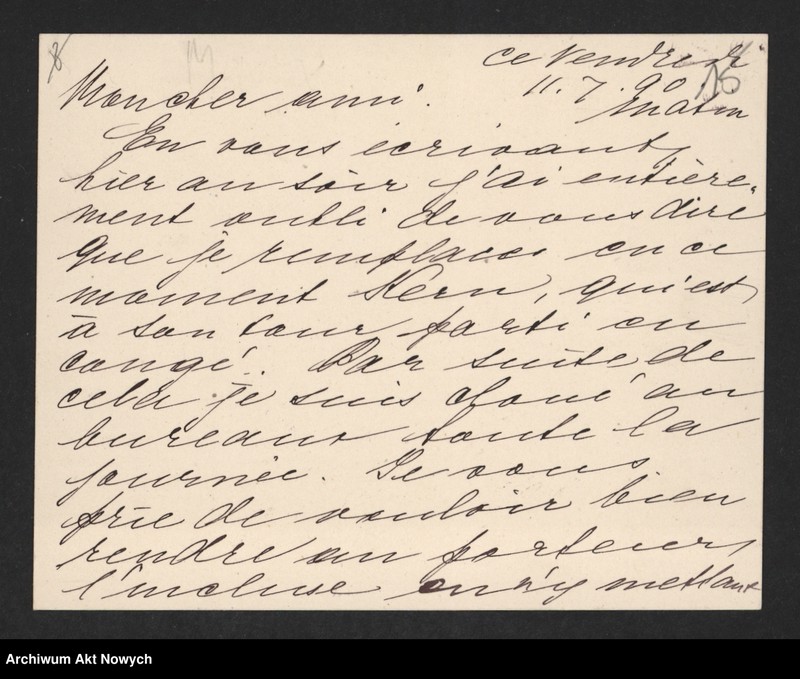 8
ce Vendredi
11.7.90 16
Mon cher ami. Matin
En vous écrivant,
hier au soir j'ai entière-
ment oubli de vous dire
que je remplace en ce
moment Kern, qui est
à son tour parti en
congé. Par suite de
cela je suis cloué au
bureau toute la
journée. Je vous
prie de vouloir bien
rendre au porteur,
l'incluse en y mettant
Archiwum Akt Nowych